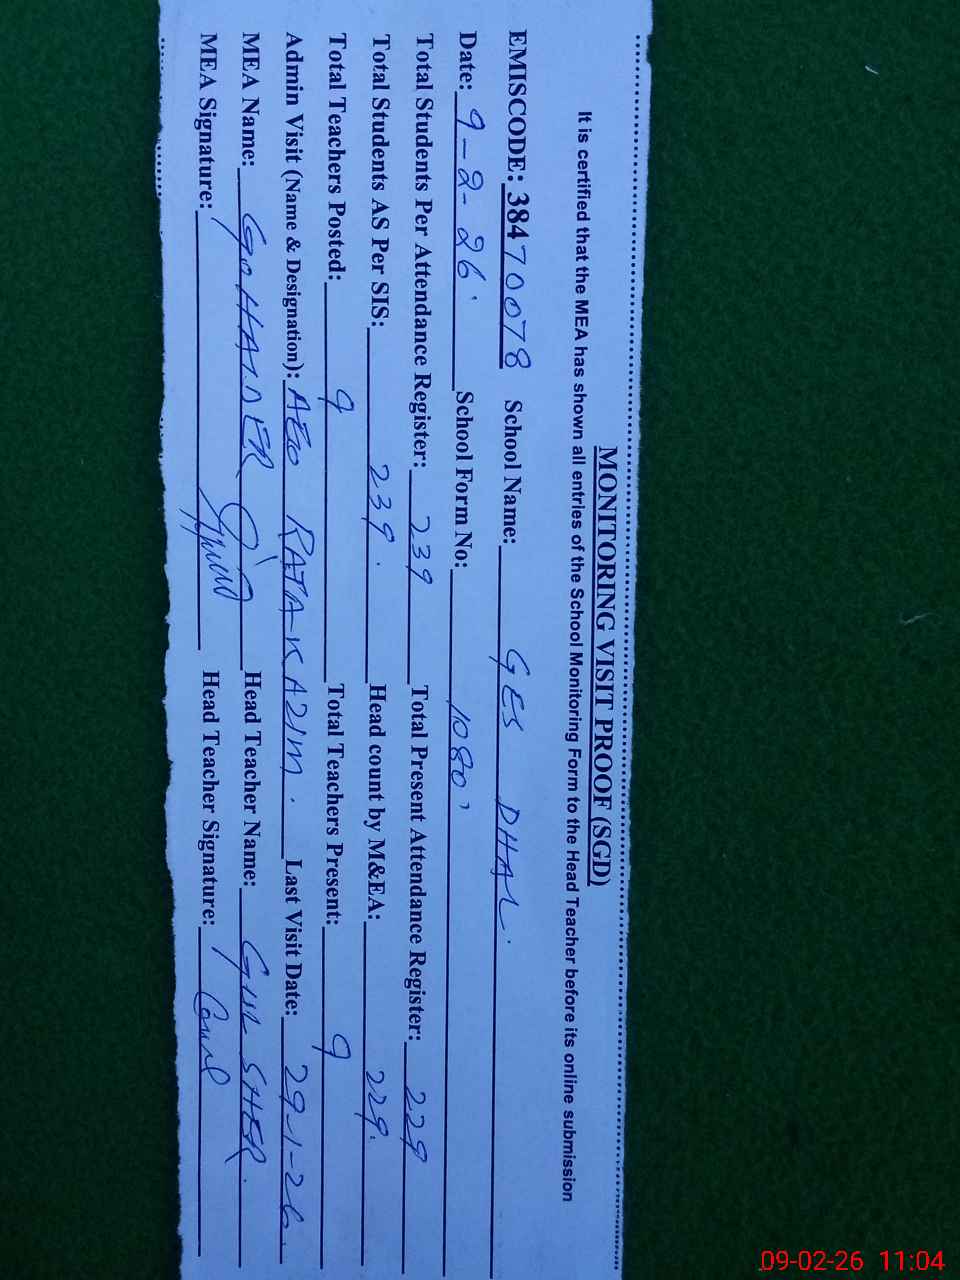 MONITORING VISIT PROOF (SGD)
It is certified that the MEA has shown all entries of the School Monitoring Form to the Head Teacher before its online submission
EMISCODE: 38470078 School Name: GES DHAL.
Date: 9-2-26. School Form No: 1080
Total Students Per Attendance Register: 239 Total Present Attendance Register: 229
Total Students AS Per SIS: 239. Head count by M&EA: 229.
Total Teachers Posted: 9 Total Teachers Present: 9
Admin Visit (Name & Designation): AEO RATA KAZIM. Last Visit Date: 29-1-26.
MEA Name: Head Teacher Name: GUL SHER.
MEA Signature: Head Teacher Signature:
09-02-26 11:04